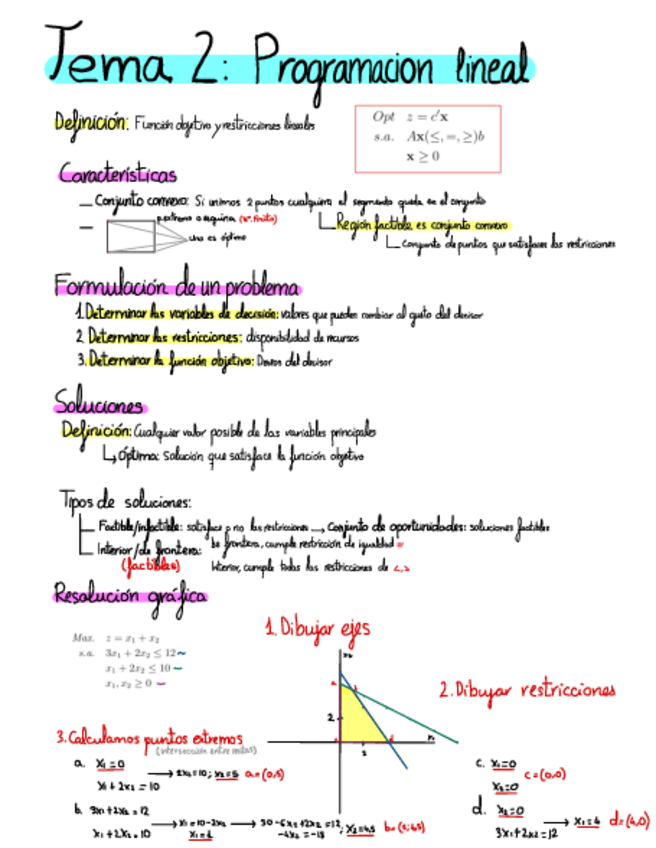 Tema 2: Programacion lineal
Definición: Función objetivo y restricciones lineales
Opt z = c'x
s.a. Ax(≤, =, ≥)b
x ≥ 0
Características
— Conjunto convexo: Si unimos 2 puntos cualquiera el segmento queda en el conjunto
Región factible es conjunto convexo
Conjunto de puntos que satisfacen las restricciones
— p.extremo o esquina (nº finito)
Uno es óptimo
Formulación de un problema
1. Determinar las variables de decisión: valores que pueden cambiar al gusto del decisor
2. Determinar las restricciones: disponibilidad de recursos
3. Determinar la función objetivo: Deseos del decisor
Soluciones
Definición: Cualquier valor posible de las variables principales
↳ Óptima: Solución que satisface la función objetivo
Tipos de soluciones:
Factible/infactible: satisface o no las restricciones → Conjunto de oportunidades: soluciones factibles
Interior/de frontera: De frontera, cumple restricción de igualdad =
(factibles) Interior, cumple todas las restricciones de <, >
Resolución gráfica
Max. z = x₁ + x₂
s.a. 3x₁ + 2x₂ ≤ 12
x₁ + 2x₂ ≤ 10
x₁, x₂ ≥ 0
1. Dibujar ejes
2. Dibujar restricciones
3. Calculamos puntos extremos
(intersección entre rectas)
a. x₁=0
x₁ + 2x₂ = 10
→ 2x₂=10; x₂=5 a=(0,5)
b. 3x₁+2x₂=12
x₁+2x₂=10
→ x₁=10-2x₂
x₁=1
→ 30-6x₂+2x₂=12
-4x₂=-18; x₂=4,5 b=(1;4,5)
c. x₁=0
x₂=0
c=(0,0)
d. x₂=0
3x₁+2x₂=12
→ x₁=4 d=(4,0)